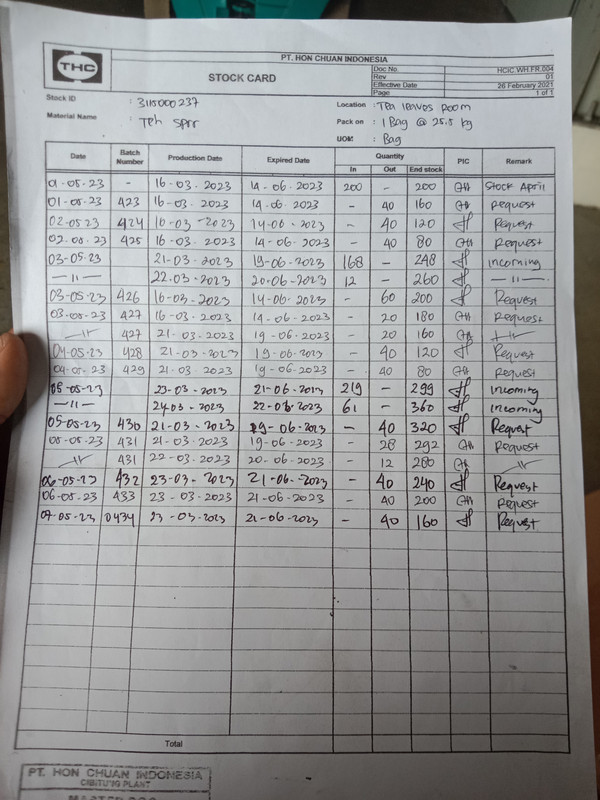 THC
PT. HON CHUAN INDONESIA
STOCK CARD
Doc No. HCIC.WH.FR.004
Rev 01
Effective Date 26 February 2021
Page 1 of 1
Stock ID : 3115000237
Location : Tea leaves room
Material Name : Teh sprr
Pack on : 1 Bag @ 25.5 kg
UOM : Bag
Date Batch Number Production Date Expired Date Quantity PIC Remark
In Out End stock
01-05-23 - 16-03-2023 14-06-2023 200 - 200 Stock April
01-05-23 423 16-03-2023 14-06-2023 - 40 160 Request
02-05-23 424 16-03-2023 14-06-2023 - 40 120 Request
02-05-23 425 16-03-2023 14-06-2023 - 40 80 Request
03-05-23 21-03-2023 19-06-2023 168 - 248 Incoming
-11- 22-03-2023 20-06-2023 12 - 260 -11-
03-05-23 426 16-03-2023 14-06-2023 - 60 200 Request
03-05-23 427 16-03-2023 14-06-2023 - 20 180 Request
-11- 427 21-03-2023 19-06-2023 - 20 160 -11-
04-05-23 428 21-03-2023 19-06-2023 - 40 120 Request
04-05-23 429 21-03-2023 19-06-2023 - 40 80 Request
05-05-23 23-03-2023 21-06-2023 219 - 299 Incoming
-11- 24-03-2023 22-06-2023 61 - 360 Incoming
05-05-23 430 21-03-2023 19-06-2023 - 40 320 Request
05-05-23 431 21-03-2023 19-06-2023 - 28 292 Request
-11- 431 22-03-2023 20-06-2023 - 12 280 -11-
06-05-23 432 23-03-2023 21-06-2023 - 40 240 Request
06-05-23 433 23-03-2023 21-06-2023 - 40 200 Request
07-05-23 0434 23-03-2023 21-06-2023 - 40 160 Request
Total
PT. HON CHUAN INDONESIA
CIBITUNG PLANT